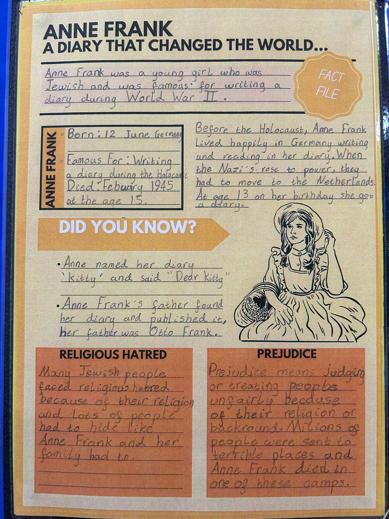 ANNE FRANK
A DIARY THAT CHANGED THE WORLD...
Anne Frank was a young girl who was
Jewish and was famous for writing a
diary during World War II.
FACT
FILE
ANNE FRANK
Born: 12 June Germany
Famous For: Writing
a diary during the Holocaust
Died: Febuary 1945
at the age 15.
Before the Holocaust, Anne Frank
lived happily in Germany writing
and reading in her diary. When
the Nazi's rose to power, they
had to move to the Netherlands.
At age 13 on her birthday she got
a diary.
DID YOU KNOW?
• Anne named her diary
'Kitty' and said "Dear Kitty"
• Anne Frank's father found
her diary and published it,
her father was Otto Frank.
RELIGIOUS HATRED
Many Jewish people
faced religious hatred
because of their religion
and lots of people
had to hide like
Anne Frank and her
family had to.
PREJUDICE
Prejudice means judging
or treating peoples
unfairly because
of their religion or
backround. Milions of
people were sent to
terrible places and
Anne Frank died in
one of these camps.